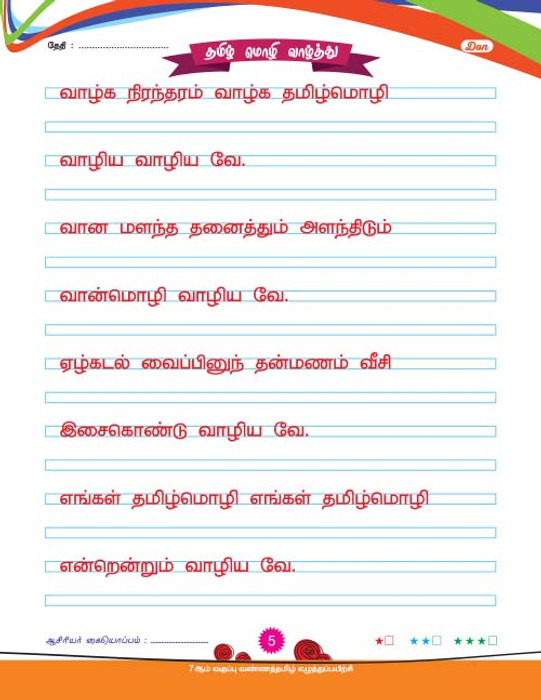 தேதி : ..................................
தமிழ் மொழி வாழ்த்து
Don
வாழ்க நிரந்தரம் வாழ்க தமிழ்மொழி
வாழிய வாழிய வே.
வான மளந்த தனைத்தும் அளந்திடும்
வான்மொழி வாழிய வே.
ஏழ்கடல் வைப்பினுந் தன்மணம் வீசி
இசைகொண்டு வாழிய வே.
எங்கள் தமிழ்மொழி எங்கள் தமிழ்மொழி
என்றென்றும் வாழிய வே.
ஆசிரியர் கையொப்பம் : ........................
5
7ஆம் வகுப்பு வண்ணத்தமிழ் எழுத்துப்பயிற்சி